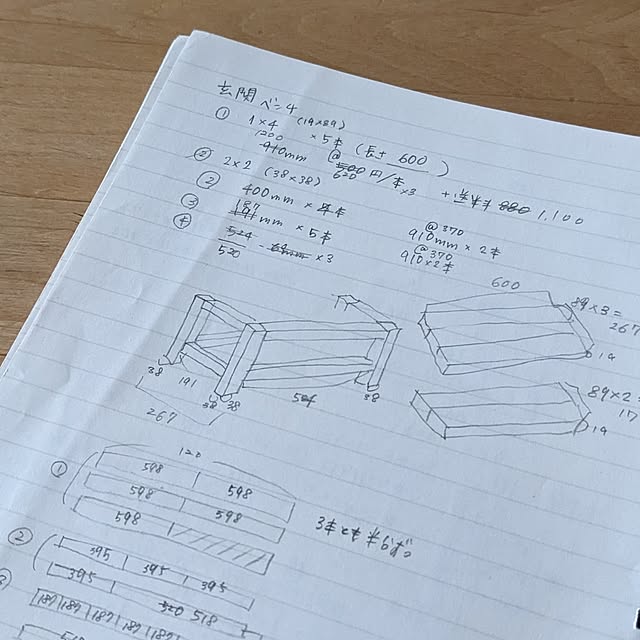 玄関ベンチ
① 1×4 (19×89)
1200 ×5本 (長さ 600)
910mm @500 620 円/本 ×3 + 送料 880 1,100
② 2×2 (38×38)
② 400mm × 4本 @370
910mm × 2本
③ 187 191mm × 5本 @370
910×2本
④ 524 520 ×3
600
89×3=
267
19
38 191 38 38 524 38
267
89×2=
17
19
120
① 598 598
598 598
598
3本とも半分に。
② 395 395 395
395 520 518
③ 187 187 187 187 187